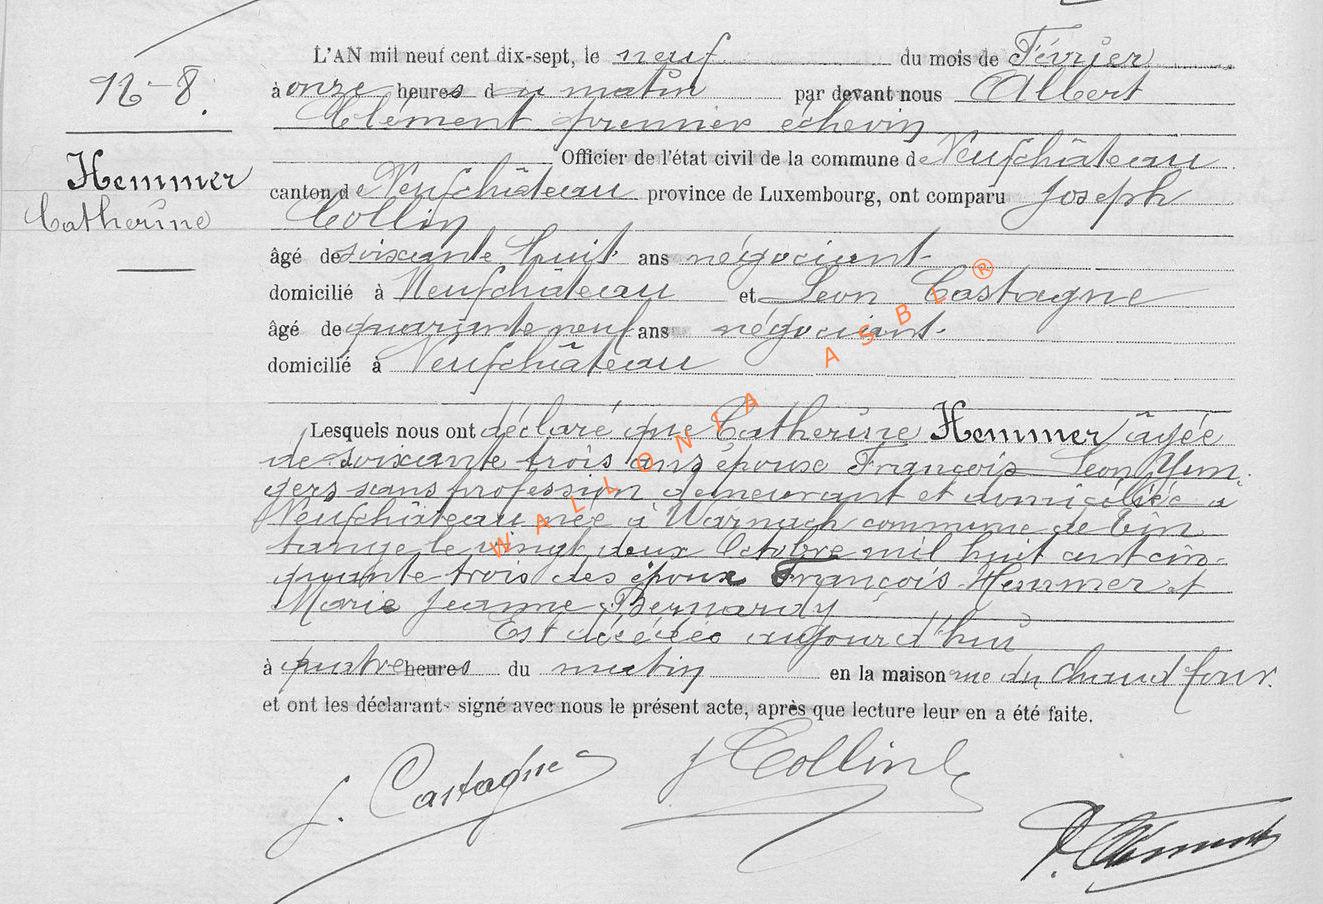 L'AN mil neuf cent dix-sept, le neuf du mois de Février
N° 8.
à onze heures du matin par devant nous Albert
Clément premier échevin
Officier de l'état civil de la commune de Neufchâteau
Hemmer
Catherine
canton de Neufchâteau province de Luxembourg, ont comparu Joseph
Collin
âgé de soixante huit ans négociant
domicilié à Neufchâteau et Léon Castagne
âgé de quarante neuf ans négociant
domicilié à Neufchâteau
Lesquels nous ont déclaré que Catherine Hemmer âgée
de soixante trois ans épouse François Léon
gers sans profession demeurant et domiciliée à
Neufchâteau née à Warnach commune de Tin
tange le vingt deux Octobre mil huit cent cin-
quante trois des époux François Hemmer et
Marie Jeanne Bernardy
Est décédée aujourd'hui
à quatre heures du matin en la maison rue du Chaud four.
et ont les déclarants signé avec nous le présent acte, après que lecture leur en a été faite.
Castagne J Collin
Clément
WALLONIA ASBL ®